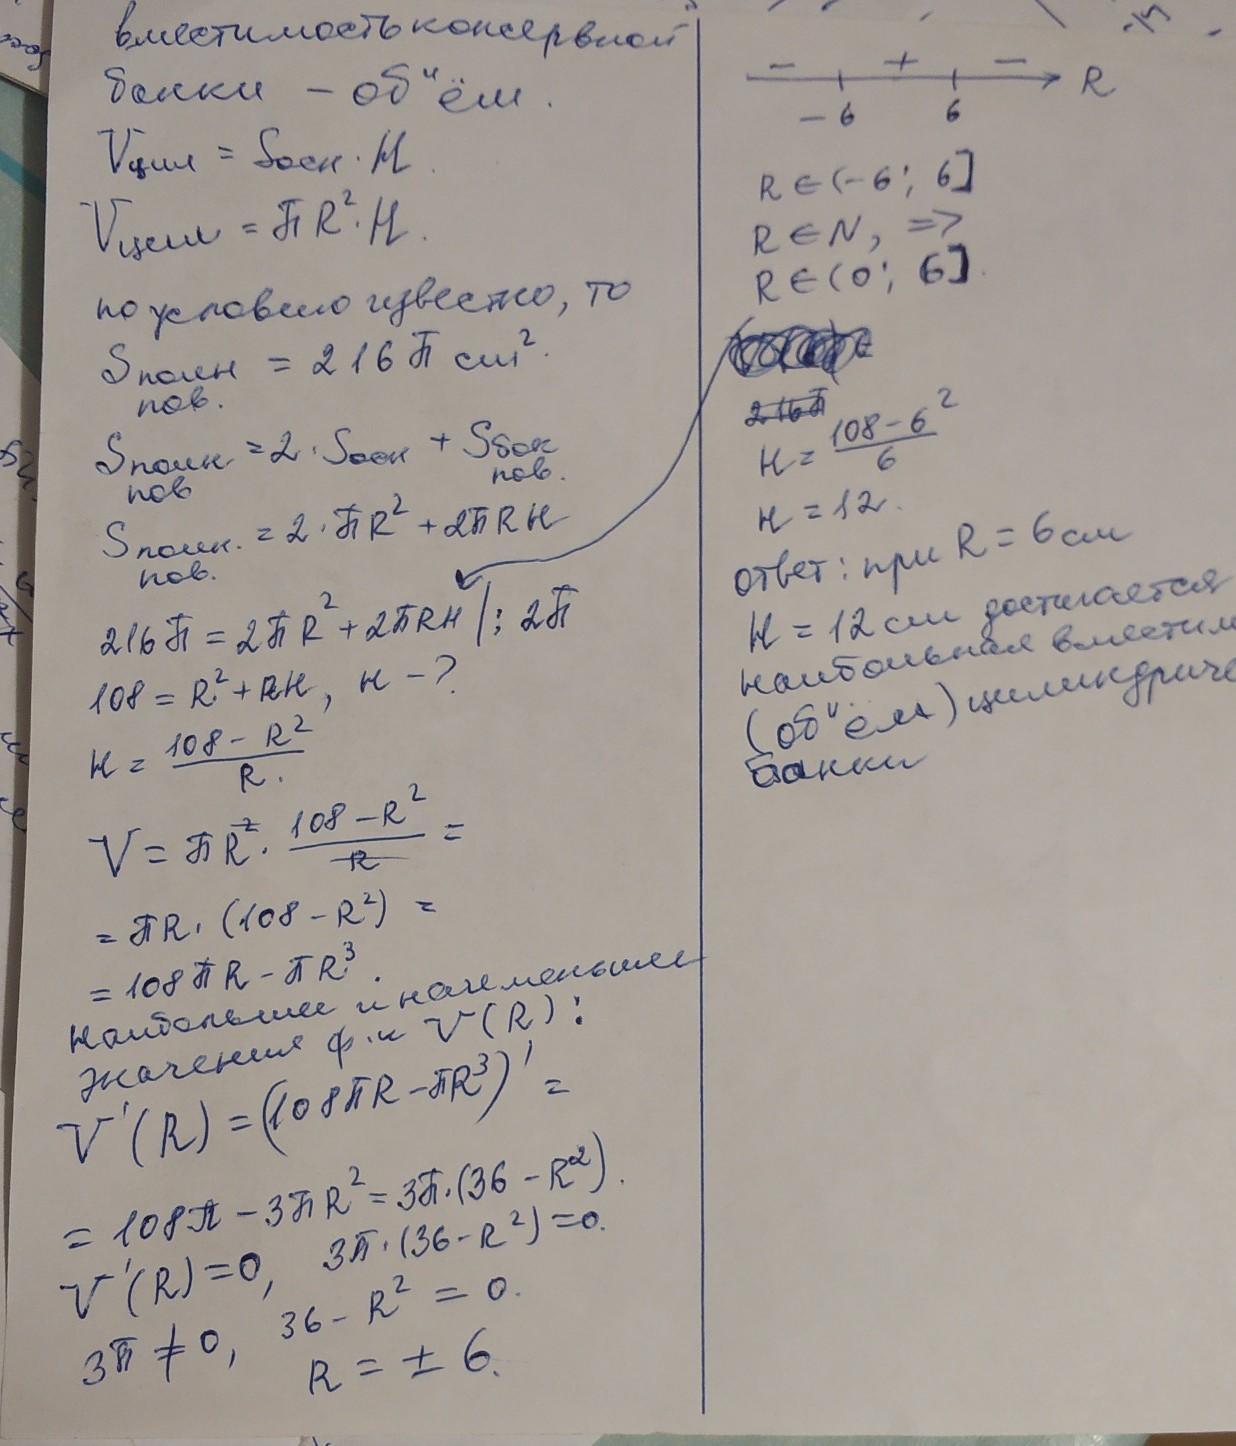 вместимость консервной
банки – об"ём.
Vцил = Sосн · H.
Vцил = πR² · H.
по условию известно, то
Sполн пов. = 216π см².
Sполн пов = 2 · Sосн + Sбок пов.
Sполн. пов. = 2 · πR² + 2πRH
216π = 2πR² + 2πRH | : 2π
108 = R² + RH, H – ?
H = (108 – R²)/R.
V = πR² · (108 – R²)/R =
= πR · (108 – R²) =
= 108πR – πR³.
наибольшее и наименьшее
значения ф.и V(R):
V'(R) = (108πR – πR³)' =
= 108π – 3πR² = 3π·(36 – R²).
V'(R) = 0, 3π·(36 – R²) = 0.
3π ≠ 0, 36 – R² = 0.
R = ± 6.
– + – R
– 6 6
R ∈ (–6; 6]
R ∈ N, =>
R ∈ (0; 6].
216π
H = (108 – 6²)/6
H = 12.
ответ: при R = 6 см
H = 12 см достигается
наибольшая вместим
(об"ём) цилиндриче
банки